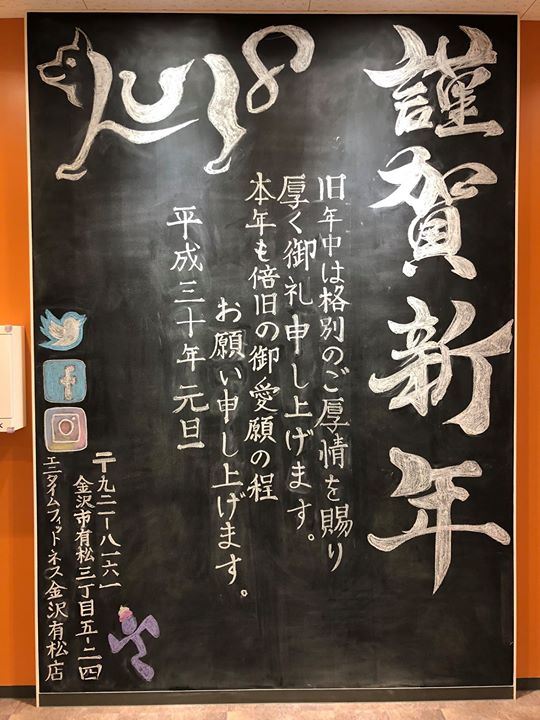 謹賀新年
旧年中は格別のご厚情を賜り
厚く御礼申し上げます。
本年も倍旧の御愛願の程
お願い申し上げます。
平成三十年元旦
2018
〒九二一-八一六一
金沢市有松三丁目五-二四
エニタイムフィットネス金沢有松店